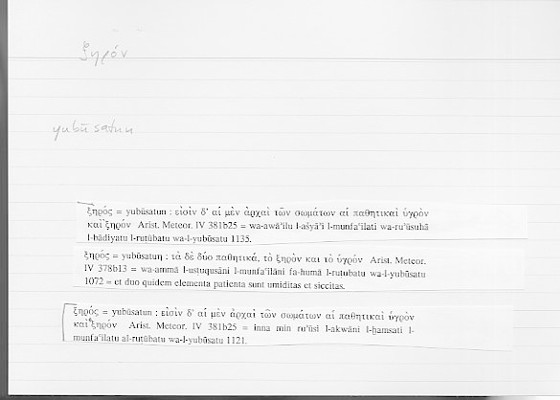 ξηρόν
yubūsatun
ξηρός = yubūsatun : εἰσὶν δ' αἱ μὲν ἀρχαὶ τῶν σωμάτων αἱ παθητικαὶ ὑγρὸν
καὶ ξηρόν Arist. Meteor. IV 381b25 = wa-awāʾilu l-ašyāʾi l-munfaʿilati wa-ruʾūsuhā
l-hādiyatu l-rutūbatu wa-l-yubūsatu 1135.
ξηρός = yubūsatun : τὰ δὲ δύο παθητικά, τὸ ξηρὸν καὶ τὸ ὑγρόν Arist. Meteor.
IV 378b13 = wa-ammā l-ustuqusāni l-munfaʿilāni fa-humā l-rutubatu wa-l-yubūsatu
1072 = et duo quidem elementa patientia sunt umiditas et siccitas.
ξηρός = yubūsatun : εἰσὶν δ' αἱ μὲν ἀρχαὶ τῶν σωμάτων αἱ παθητικαὶ ὑγρὸν
καὶ ξηρόν Arist. Meteor. IV 381b25 = inna min ruʾūsi l-akwāni l-ḫamsati l-
munfaʿilatu al-rutūbatu wa-l-yubūsatu 1121.